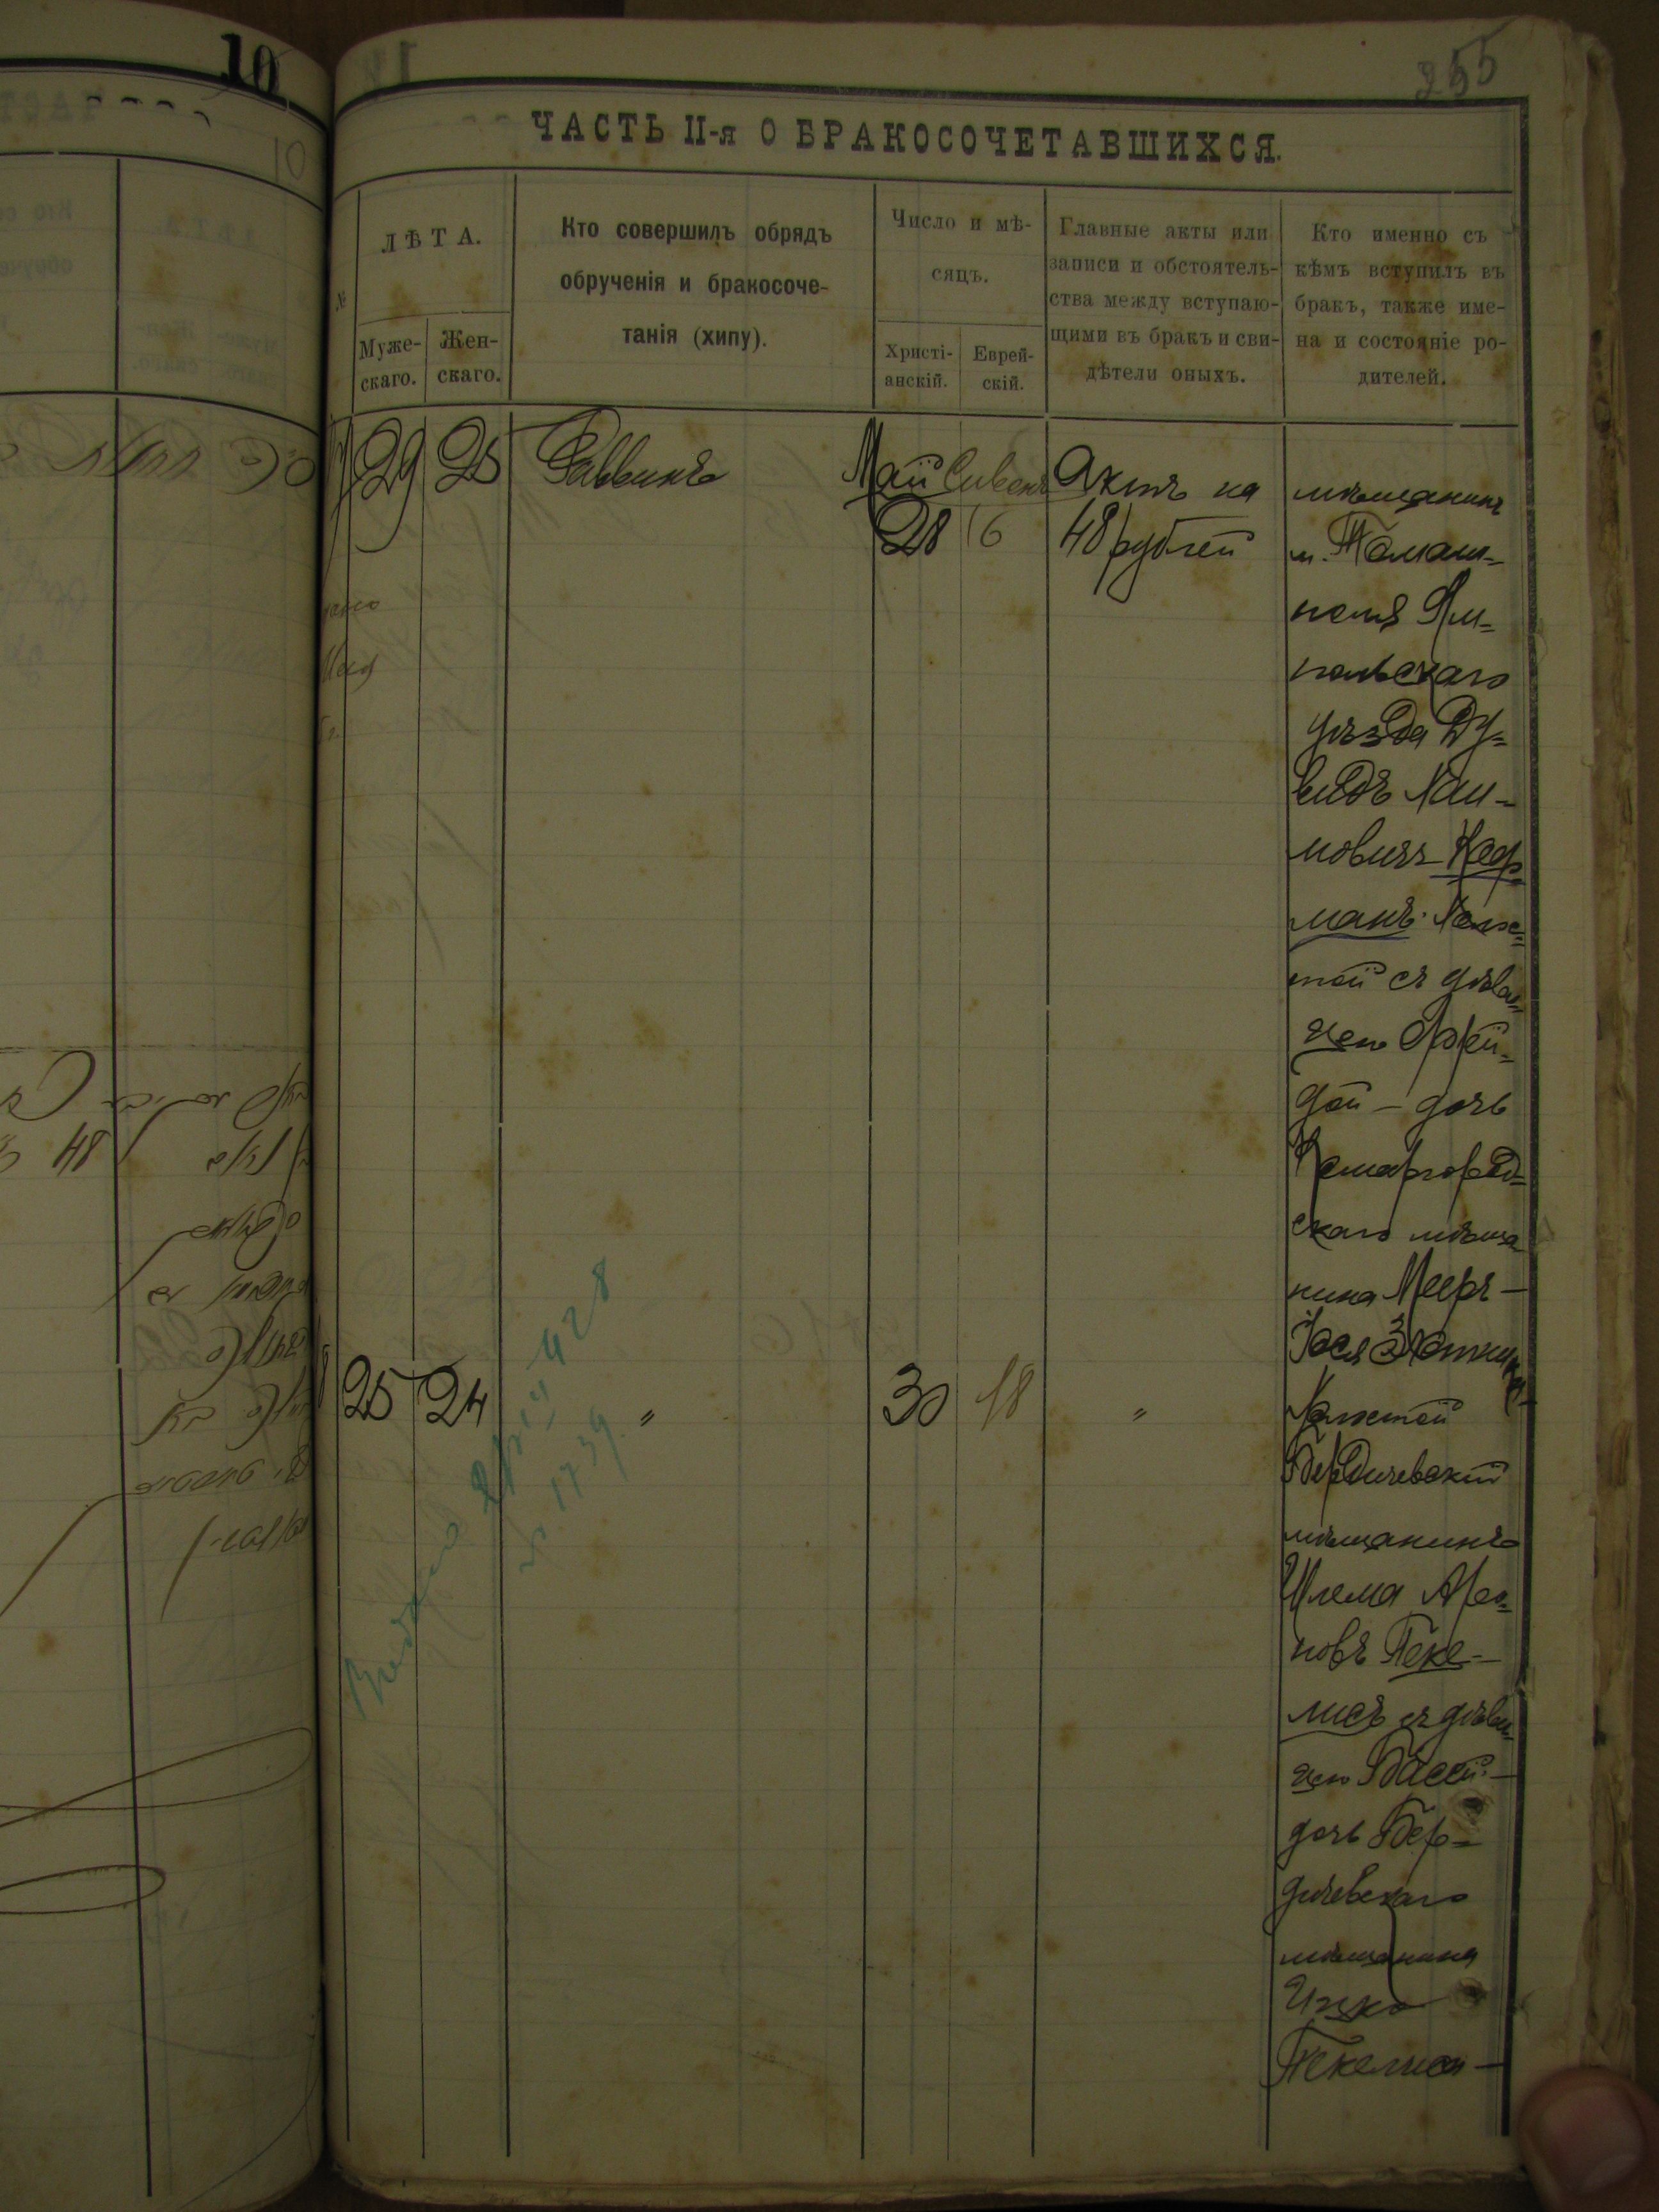 10
255
ЧАСТЬ II-я О БРАКОСОЧЕТАВШИХСЯ.
№
ЛѢТА.
Муже-
скаго.
Жен-
скаго.
Кто совершилъ обрядъ
обрученія и бракосоче-
танія (хипу).
Число и мѣ-
сяцъ.
Христі-
анскій.
Еврей-
скій.
Главные акты или
записи и обстоятель-
ства между вступаю-
щими въ бракъ и сви-
дѣтели оныхъ.
Кто именно съ
кѣмъ вступилъ въ
бракъ, также име-
на и состояніе ро-
дителей.
29 25 Раввинъ
Май Сивенъ
28 16
Актъ на
48 рублей
мѣщанинъ
м. Томаш-
поля Ям-
польскаго
уѣзда Ду-
видъ Хаи-
мовичъ Кор-
манъ. Холос-
той съ дѣви-
цею Фрей-
дой – дочь
Комаргород-
скаго мѣща
нина Мееръ –
Іося
25 24 " 30 18 "
Холостой
Бердичевскій
мѣщанинъ
Шлема Аро-
новъ Пеке-
лисъ съ дѣви-
цею Басей –
дочь Бер-
дичевскаго
мѣщанина
Ицко
Пекелиса –
428
1739